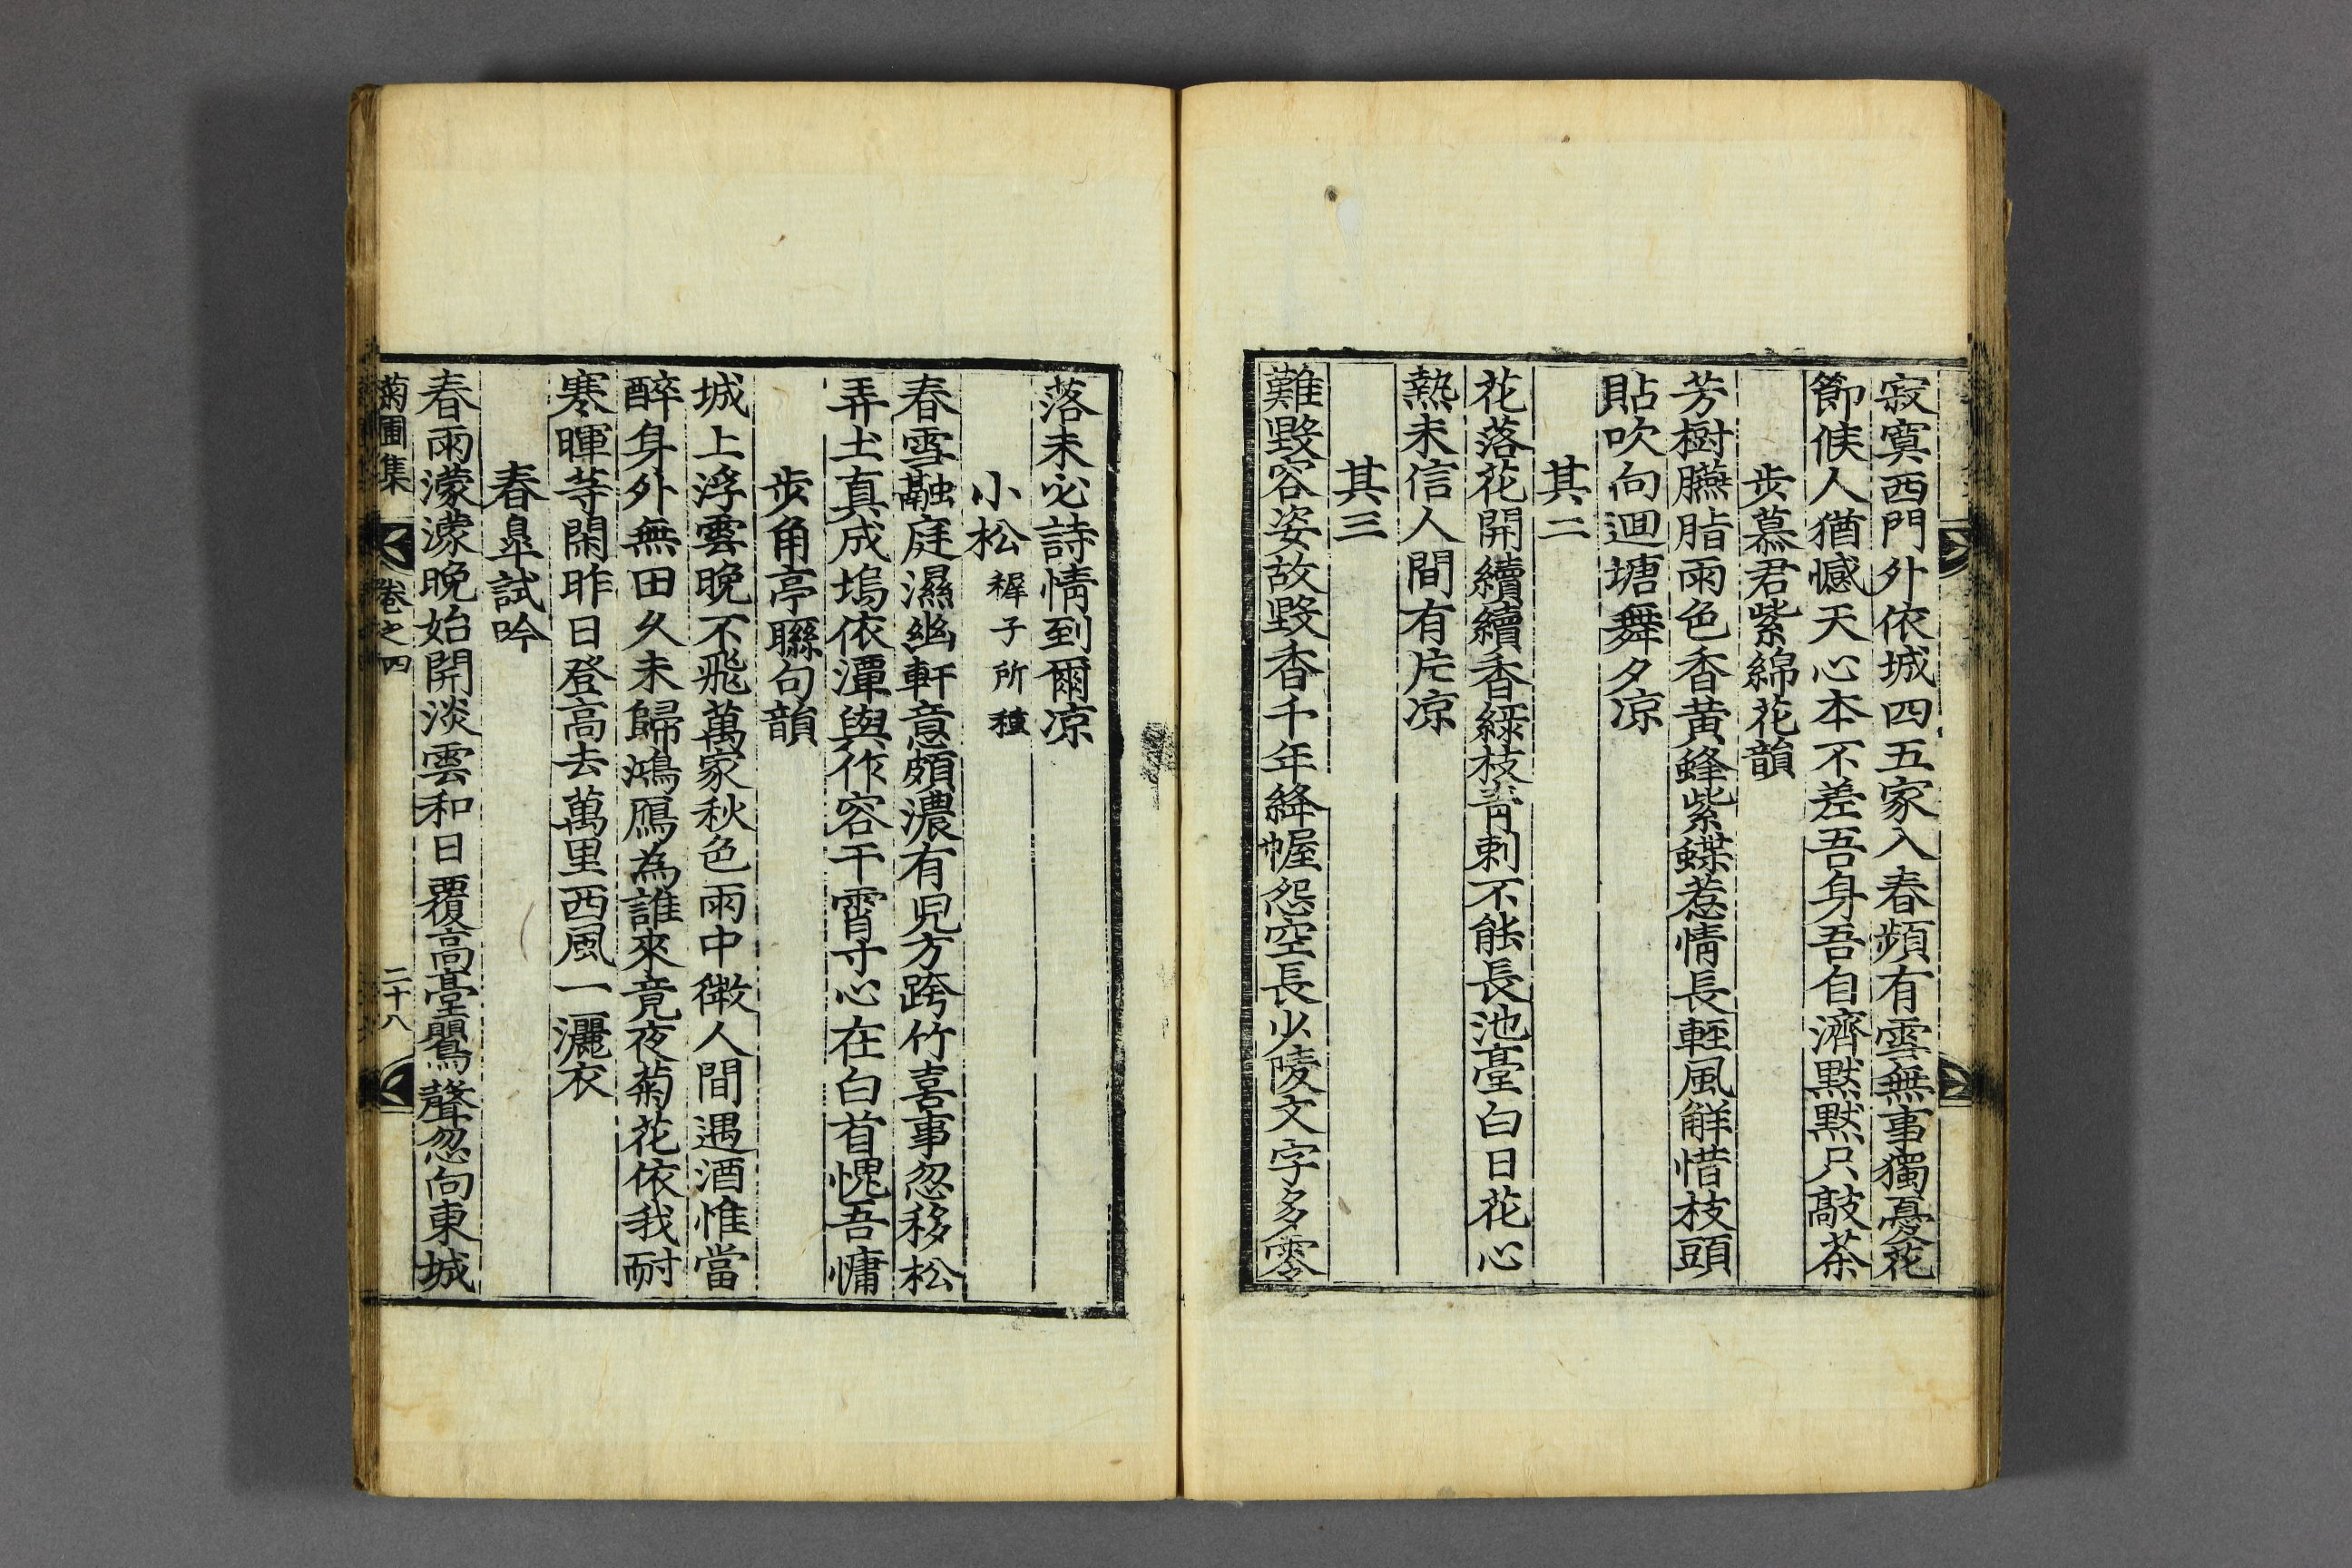 寂寞西門外依城四五家入春頻有雪無事獨憂花
節候人猶憾天心本不差吾身吾自濟默默只敲茶
步慕君紫綿花韻
芳樹臙脂雨色香黃蜂紫蝶惹情長輕風觧惜枝頭
貼吹向迴塘舞夕凉
其二
花落花開續續香綠枝靑刺不能長池臺白日花心
熱未信人間有片凉
其三
難毁容姿故毁香千年絳幄怨空長少陵文字多零
落未必詩情到爾凉
小松 穉子所種
春雪融庭濕幽軒意頗濃有児方跨竹喜事忽移松
弄土真成塢依潭與作容干霄寸心在白首愧吾慵
步角亭聯句韻
城上浮雲晚不飛萬家秋色雨中微人間遇酒惟當
醉身外無田久未歸鴻鴈為誰來竟夜菊花依我耐
寒暉等閑昨日登高去萬里西風一灑衣
春皐試吟
春雨濛濛晚始開淡雲和日覆高臺鸎聲忽向東城
菊圃集 卷之四 二十八